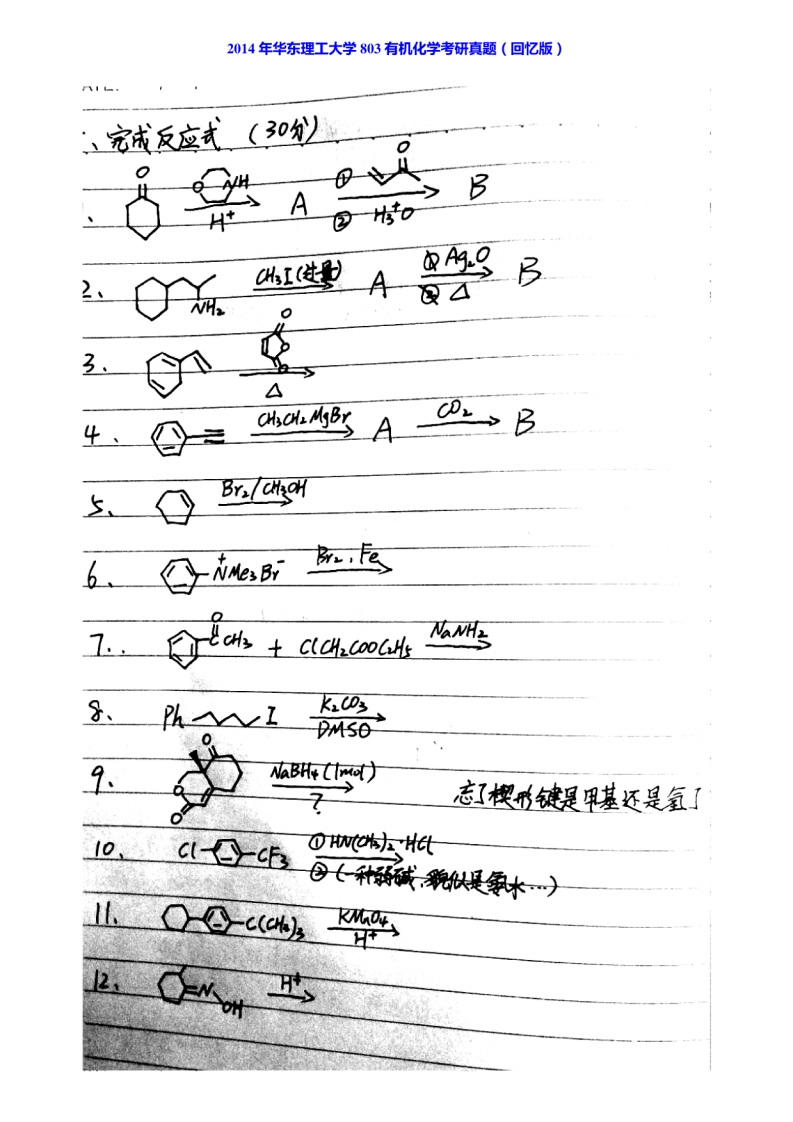 2014 年华东理工大学 803 有机化学考研真题（回忆版）
、完成反应式 （30分）
、 O O NH H⁺ A ① O ② H₃⁺O B
2、 NH₂ CH₃I(过量) A ① Ag₂O ② △ B
3. O O O △
4、 CH₃CH₂MgBr A CO₂ B
5、 Br₂/CH₃OH
6、 N⁺Me₃Br⁻ Br₂, Fe
7.. O C CH₃ + ClCH₂COOC₂H₅ NaNH₂
8、 Ph I K₂CO₃ DMSO
9、 O O O NaBH₄(1mol) ? 忘了楔形键是甲基还是氢了
10、 Cl CF₃ ① HN(CH₃)₂·HCl ② (一种弱碱，貌似是氨水…)
11、 C(CH₃)₃ KMnO₄ H⁺
12、 N OH H⁺